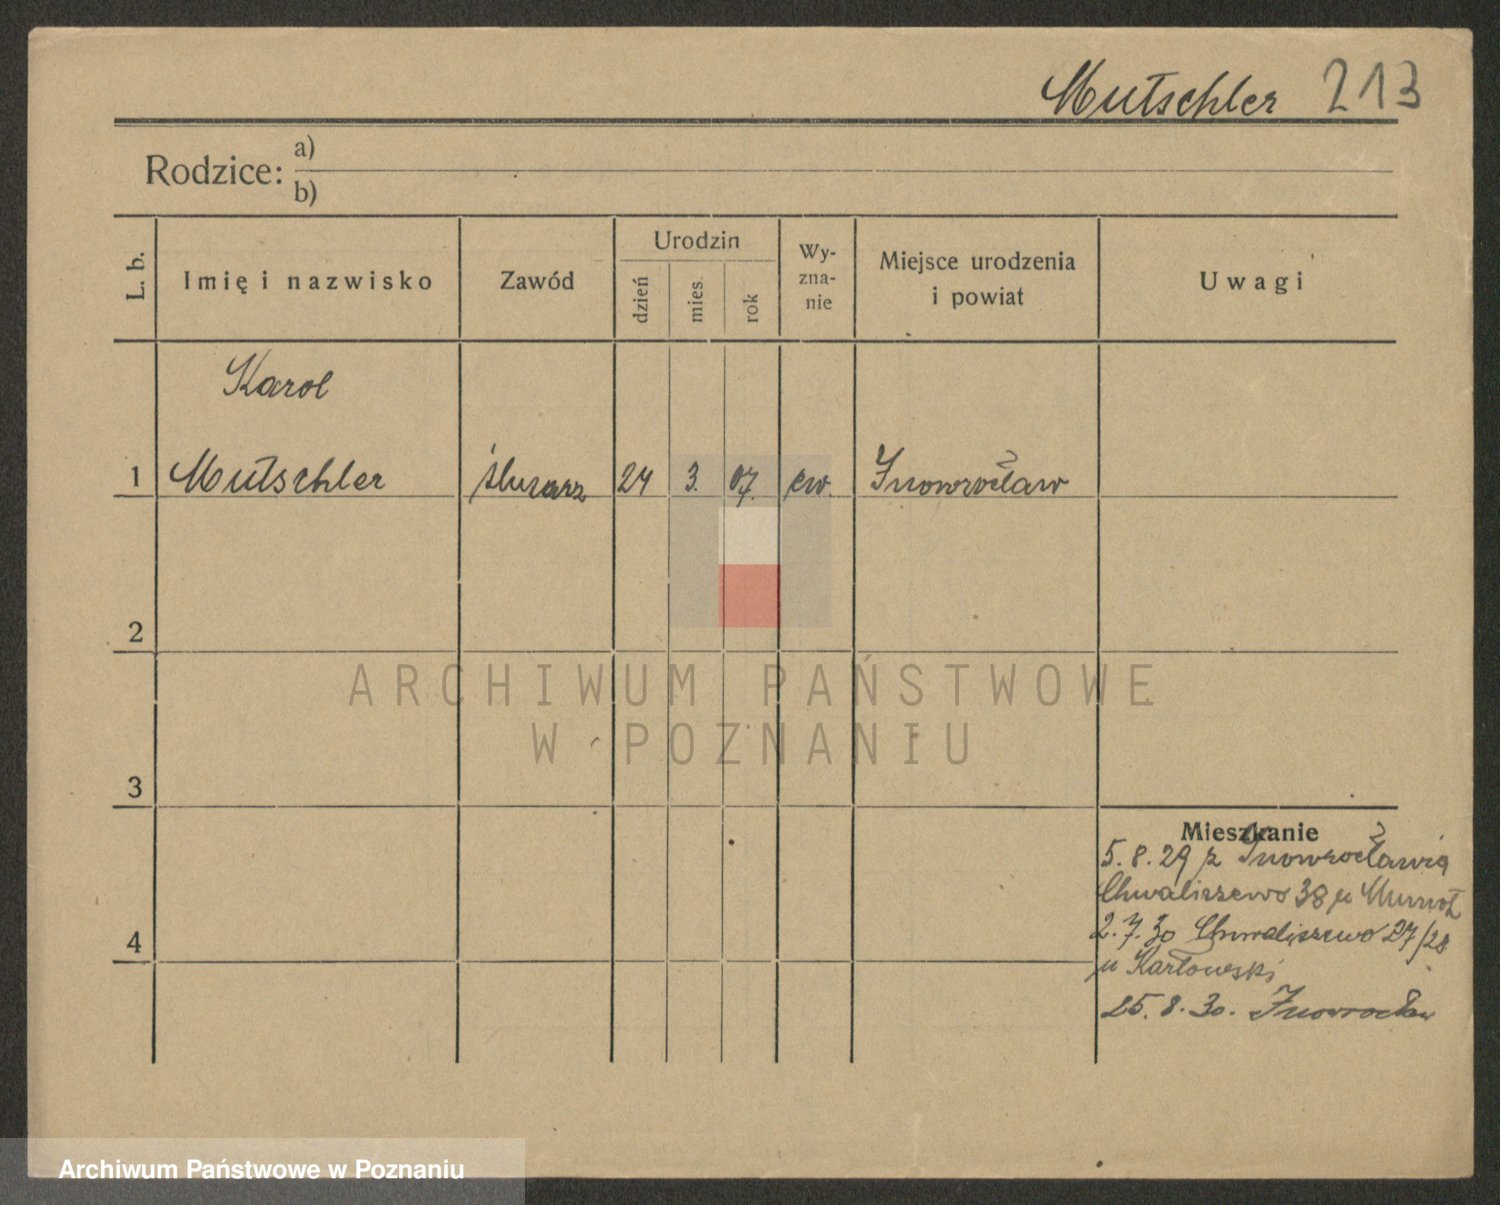 Mutschler 213
Rodzice: a)
b)
L. b.
Imię i nazwisko
Zawód
Urodzin
dzień
mies.
rok
Wy-
zna-
nie
Miejsce urodzenia
i powiat
Uwagi
Karol
1 Mutschler ślusarz 24 3. 07. ew. Inowrocław
2
ARCHIWUM PAŃSTWOWE
W POZNANIU
3
Mieszkanie
5.8.29 z Inowrocławia
Chwaliszewo 38 u
4
2.7.30 Chwaliszewo 27/28
u Karłowski
25.8.30. Inowrocław
Archiwum Państwowe w Poznaniu